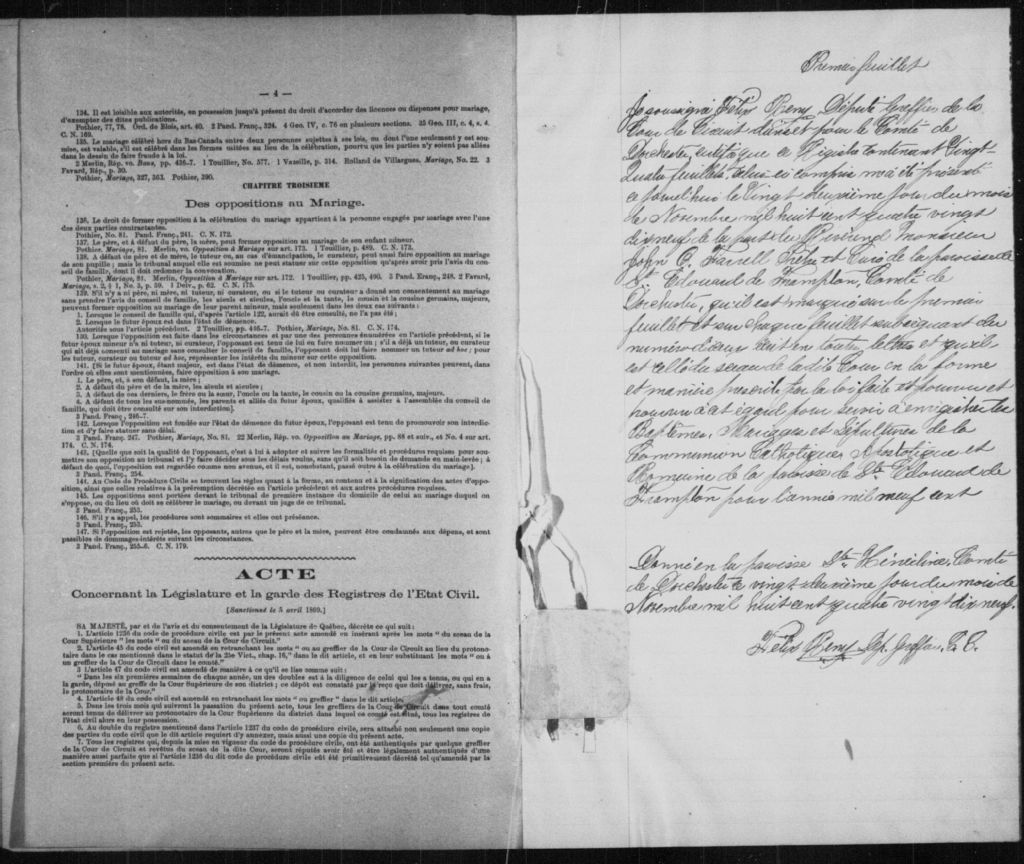 — 4 —
134. Il est loisible aux autorités, en possession jusqu'à présent du droit d'accorder des licences ou dispenses pour mariage,
d'exempter des dites publications.
Pothier, 77, 78. Ord. de Blois, art. 40. 2 Pand. Franç., 324. 4 Geo. IV, c. 76 en plusieurs sections. 35 Geo. III, c. 4, s. 4.
C. N. 169.
135. Le mariage célébré hors du Bas-Canada entre deux personnes sujettes à ses lois, ou dont l'une seulement y est sou-
mise, est valable, s'il est célébré dans les formes usitées au lieu de la célébration, pourvu que les parties n'y soient pas allées
dans le dessin de faire fraude à la loi.
2 Merlin, Rép. vo. Bans, pp. 436-7. 1 Touillier, No. 577. 1 Vazille, p. 314. Rolland de Villargues, Mariage, No. 22. 3
Favard, Rép., p. 30.
Pothier, Mariage, 327, 363. Pothier, 390.
CHAPITRE TROISIEME
Des oppositions au Mariage.
136. Le droit de former opposition à la célébration du mariage appartient à la personne engagée par mariage avec l'une
des deux parties contractantes.
Pothier, No. 81. Pand. Franç., 241. C. N. 172.
137. Le père, et à défaut du père, la mère, peut former opposition au mariage de son enfant mineur.
Pothier, Mariage, 81. Merlin, vo. Opposition à Mariage sur art. 173. 1 Touillier, p. 489. C. N. 173.
138. A défaut de père et de mère, le tuteur, ou, au cas d'émancipation, le curateur, peut aussi faire opposition au mariage
de son pupille; mais le tribunal auquel elle est soumise ne peut statuer sur cette opposition qu'après avoir pris l'avis du con-
seil de famille, dont il doit ordonner la convocation.
Pothier, Mariage, 81. Merlin, Opposition à Mariage sur art. 172. 1 Touillier, pp. 425, 490. 3 Pand. Franç., 248. 2 Favard,
Mariage, s. 2, § 1, No. 3, p. 59. 1 Delv., p. 62. C. N. 175.
139. S'il n'y a ni père, ni mère, ni tuteur, ni curateur, ou si le tuteur ou curateur a donné son consentement au mariage
sans prendre l'avis du conseil de famille, les aïeuls et aïeules, l'oncle et la tante, le cousin et la cousine germains, majeurs,
peuvent former opposition au mariage de leur parent mineur, mais seulement dans les deux cas suivants :
1. Lorsque le conseil de famille qui, d'après l'article 122, aurait dû être consulté, ne l'a pas été;
2. Lorsque le futur époux est dans l'état de démence.
Autorités sous l'article précédent. 2 Touillier, pp. 446-7. Pothier, Mariage, No. 81. C. N. 174.
130. Lorsque l'opposition est faite dans les circonstances et par une des personnes énumérées en l'article précédent, si le
futur époux mineur n'a ni tuteur, ni curateur, l'opposant est tenu de lui en faire nommer un; s'il a déjà un tuteur, ou curateur
qui ait déjà consenti au mariage sans consulter le conseil de famille, l'opposant doit lui faire nommer un tuteur ad hoc; pour
les tuteur, curateur ou tuteur ad hoc, représenter les intérêts du mineur sur cette opposition.
141. [Si le futur époux, étant majeur, est dans l'état de démence, et non interdit, les personnes suivantes peuvent, dans
l'ordre où elles sont mentionnées, faire opposition à son mariage.
1. Le père, et, à son défaut, la mère;
2. A défaut du père et de la mère, les aïeuls et aïeules;
3. A défaut de ces derniers, le frère ou la sœur, l'oncle ou la tante, le cousin ou la cousine germains, majeurs.
4. A défaut de tous les sus-nommés, les parents et alliés du futur époux, qualifiés à assister à l'assemblée du conseil de
famille, qui doit être consulté sur son interdiction].
3 Pand. Franç., 246-7.
142. Lorsque l'opposition est fondée sur l'état de démence du futur époux, l'opposant est tenu de promouvoir son interdic-
tion et d'y faire statuer sans délai.
3 Pand. Franç. 247. Pothier, Mariage, No. 81. 22 Merlin, Rép. vo. Opposition au Mariage, pp. 88 et suiv., et No. 4 sur art.
174. C. N. 174.
143. [Quelle que soit la qualité de l'opposant, c'est à lui à adopter et suivre les formalités et procédures requises pour sou-
mettre son opposition au tribunal et l'y faire décider sous les délais voulus, sans qu'il soit besoin de demande en main-levée; à
défaut de quoi, l'opposition est regardée comme non avenue, et il est, nonobstant, passé outre à la célébration du mariage].
3 Pand. Franç., 254.
144. Au Code de Procédure Civile se trouvent les règles quant à la forme, au contenu et à la signification des actes d'oppo-
sition, ainsi que celles relatives à la péremption décrétée en l'article précédent et aux autres procédures requises.
145. Les oppositions sont portées devant le tribunal de première instance du domicile de celui au mariage duquel on
s'oppose, ou du lieu où doit se célébrer le mariage, ou devant un juge de ce tribunal.
3 Pand. Franç., 253.
146. S'il y a appel, les procédures sont sommaires et elles ont préséance.
3 Pand. Franç., 253.
147. Si l'opposition est rejetée, les opposants, autres que le père et la mère, peuvent être condamnés aux dépens, et sont
passibles de dommages-intérêts suivant les circonstances.
3 Pand. Franç., 255-6. C. N. 179.
ACTE
Concernant la Législature et la garde des Registres de l'Etat Civil.
[Sanctionné le 5 avril 1890.]
SA MAJESTÉ, par et de l'avis et du consentement de la Législature de Québec, décrète ce qui suit :
1. L'article 1236 du code de procédure civile est par le présent acte amendé en insérant après les mots " du sceau de la
Cour Supérieure " les mots " ou du sceau de la Cour de Circuit."
2. L'article 45 du code civil est amendé en retranchant les mots " ou au greffier de la Cour de Circuit au lieu du protono-
taire dans le cas mentionné dans le statut de la 25e Vict., chap. 16," dans le dit article, et en leur substituant les mots " ou à
un greffier de la Cour de Circuit dans le comté."
3 L'article 47 du code civil est amendé de manière à ce qu'il se lise comme suit :
" Dans les six premières semaines de chaque année, un des doubles est à la diligence de celui qui les a tenus, ou qui en a
la garde, déposé au greffe de la Cour Supérieure de son district; ce dépôt est constaté par le reçu que doit délivrer, sans frais,
le protonotaire de la Cour."
4. L'article 48 du code civil est amendé en retranchant les mots " ou greffier " dans le dit article.
5. Dans les trois mois qui suivront la passation du présent acte, tous les greffiers de la Cour de Circuit dans tout comté
seront tenus de délivrer au protonotaire de la Cour Supérieure du district dans lequel ce comté est situé, tous les registres de
l'état civil alors en leur possession.
6. Au double du registre mentionné dans l'article 1237 du code de procédure civile, sera attaché non seulement une copie
des parties du code civil que le dit article requiert d'y annexer, mais aussi une copie du présent acte.
7. Tous les registres qui, depuis la mise en vigueur du code de procédure civile, ont été authentiqués par quelque greffier
de la Cour de Circuit et revêtus du sceau de la dite Cour, seront réputés avoir été et être légalement authentiqués d'une
manière aussi parfaite que si l'article 1236 du dit code de procédure civile eût été primitivement décrété tel qu'amendé par la
section première du présent acte.
Premier feuillet
Je soussigné Félix Bery, Député Greffier de la
Cour de Circuit dans et pour le Comté de
Dorchester, certifie que ce Régistre contenant Vingt-
Quatre feuillets, celui-ci compris m'a été présenté
ce jourd'hui le Vingt deuxième jour du mois
de Novembre mil huit cent quatre vingt
dix neuf de la part du Révérend Monsieur
John C. Farrell Prêtre et Curé de la paroisse de
St Edouard de Frampton, Comté de
Dorchester, qu'il est marqué sur le premier
feuillet et sur chaque feuillet subséquent du
numéro d'iceux écrit en toutes lettres et qu'il
est scellé du sceau de la dite Cour en la forme
et manière prescrite par la loi fait et pourvu et
pourvu à cet égard pour servir à enregistrer les
Baptêmes, Mariages et Sépultures de la
Communion Catholique, Apostolique et
Romaine de la paroisse de St. Edouard de
Frampton pour l'année mil neuf cent
Donné en la paroisse Ste Hénédine, Comté
de Dorchester ce vingt-deuxième jour du mois de
Novembre mil huit cent quatre vingt dix neuf.
Félix Bery Dpt. Greffier, C. C.